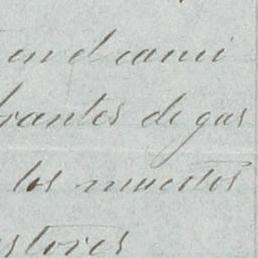 en el cami
brantes de gas
los muertos
stores